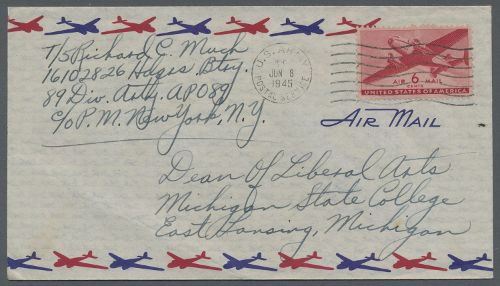 T/5 Richard C. Mack
16102826 Hdqs Btry.
89 Div. Arty. APO 89
c/o P.M. New York, N.Y.
U.S. ARMY
JUN 8
1945
POSTAL SERVICE
AIR 6 MAIL
CENTS
UNITED STATES OF AMERICA
AIR MAIL
Dean Of Liberal Arts
Michigan State College
East Lansing, Michigan